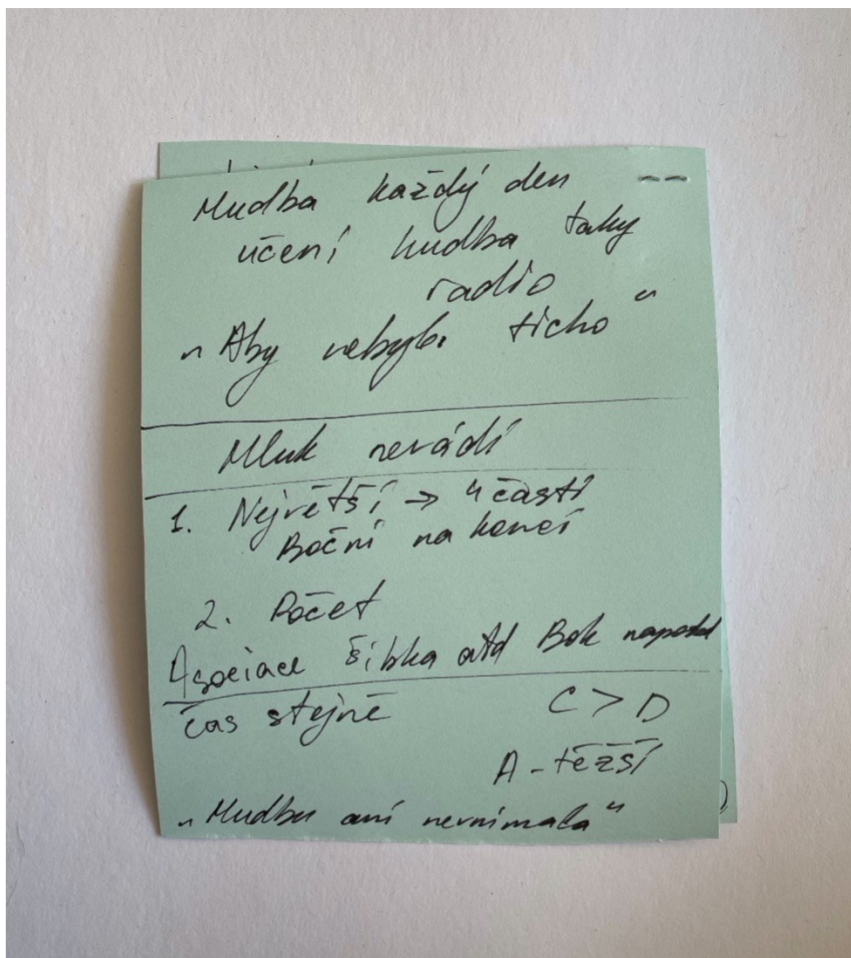 Hudba každý den
učení hudba taky
radio
„Aby nebylo ticho“
Hluk nevádí
1. Největší → 4 části
Boční na konci
2. Počet
Asociace šibka atd Bok naposled
čas stejně C > D
A - těžší
„Hudbu ani nevnímala“